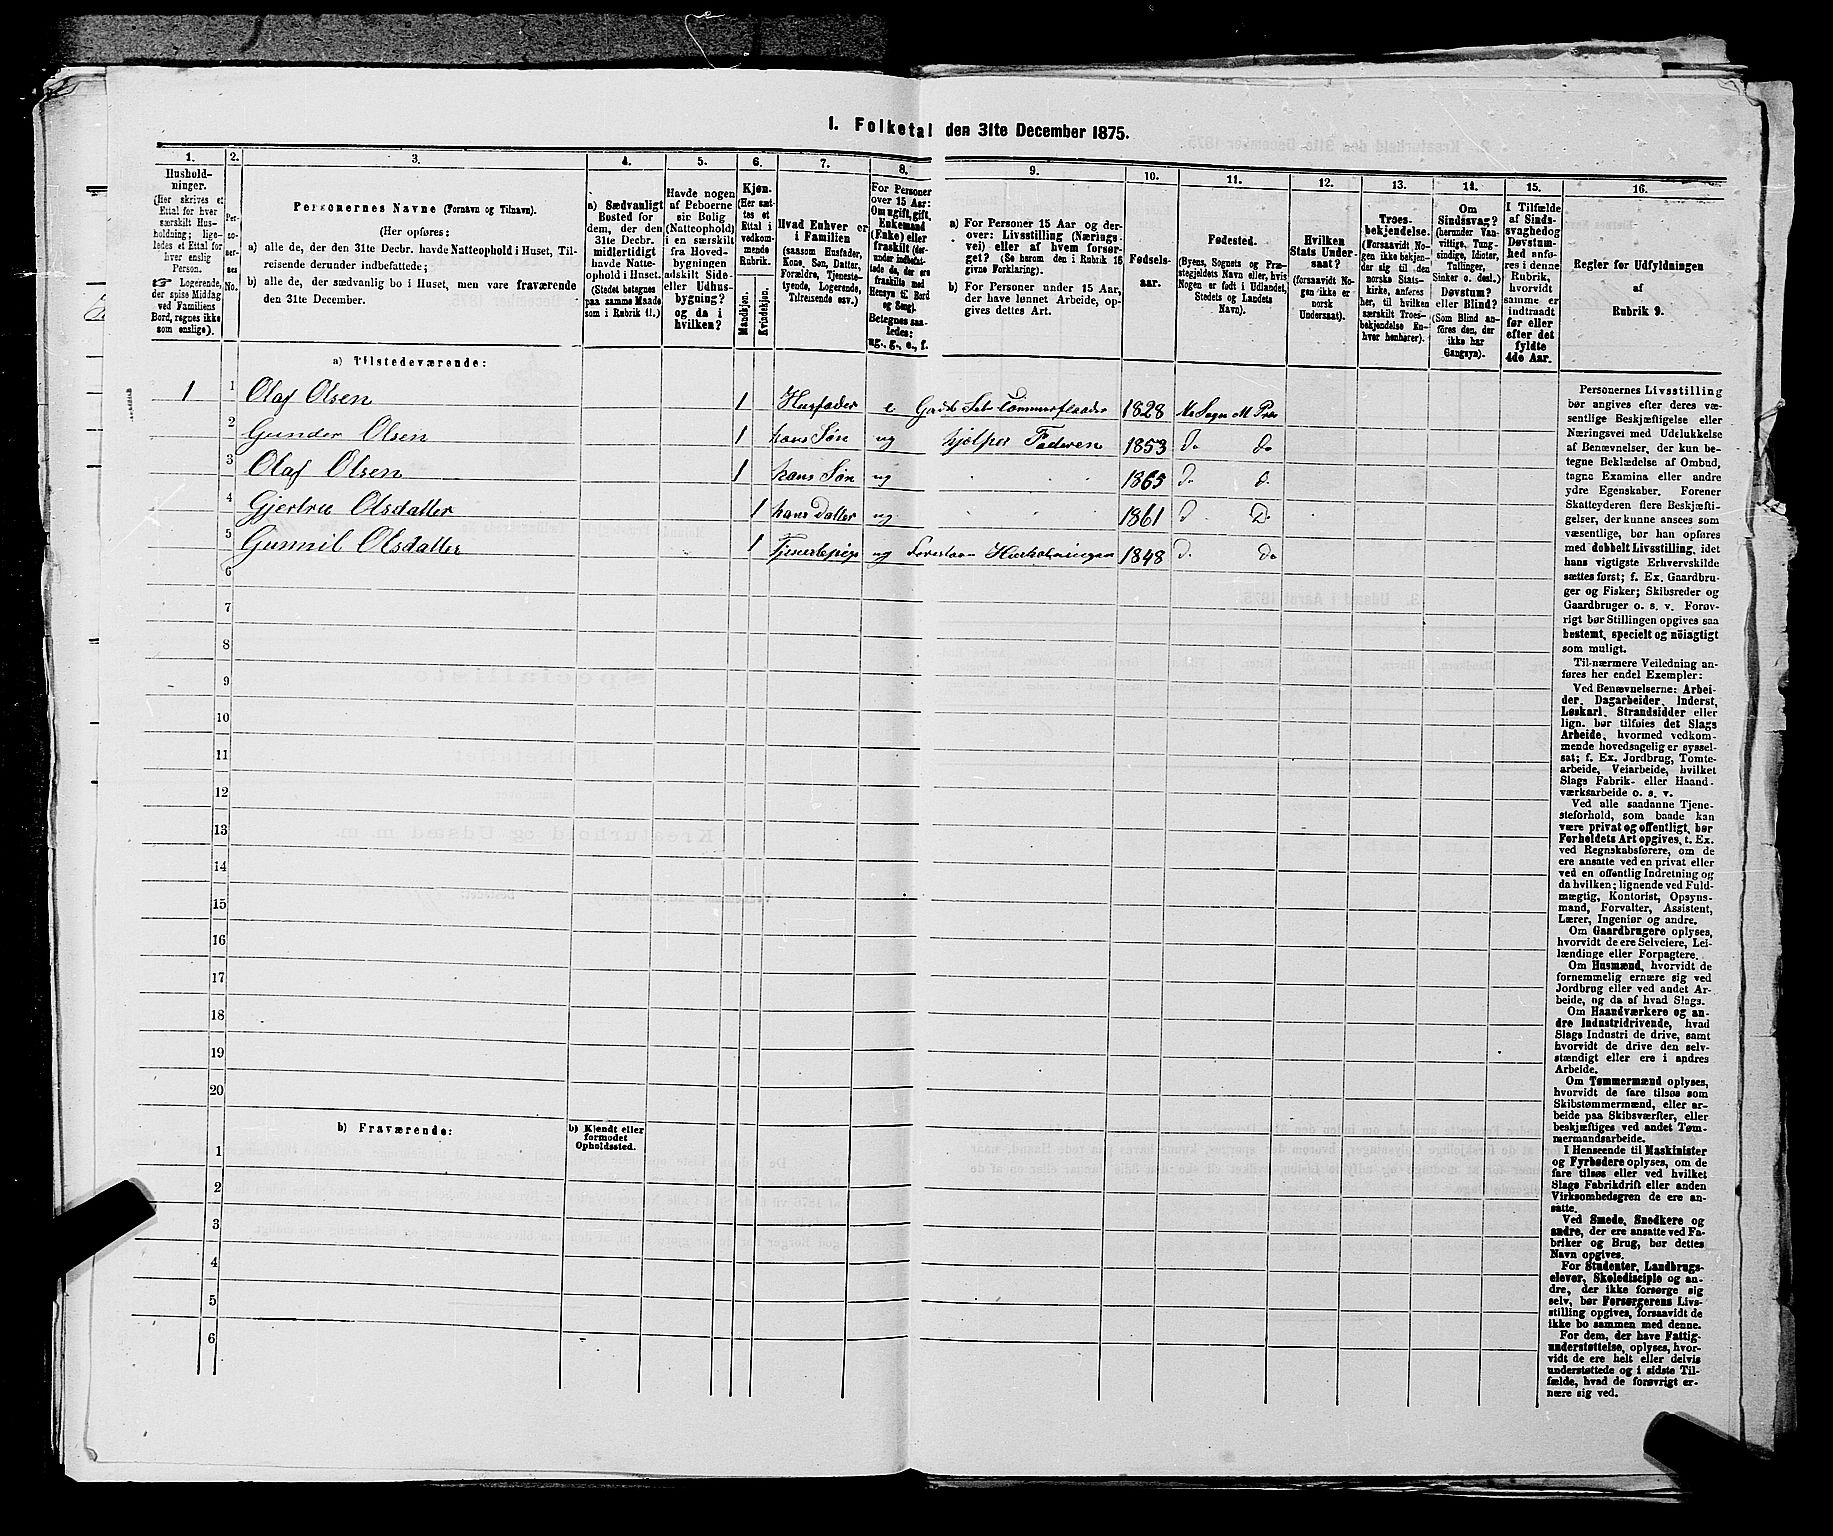 1. Folketal den 31te December 1875.
1. 2. 3. 4. 5. 6. 7. 8. 9. 10. 11. 12. 13. 14. 15. 16.
Hushold-
ninger.
(Her skrives et
Ettal for hver
særskilt Hus-
holdning; lige-
ledes et Ettal for
hver enslig
Person.
☞ Logerende,
der spise Middag
ved Familiens
Bord, regnes ikke
som enslige).
Per-
so-
ner-
nes
No.
Personernes Navne (Fornavn og Tilnavn).
(Her opføres:
a) alle de, der den 31te Decbr. havde Natteophold i Huset, Til-
reisende derunder indbefattede;
b) alle de, der sædvanlig bo i Huset, men vare fraværende
den 31te December.
a) Sædvanligt
Bosted for
dem, der den
31te Decbr.
midlertidigt
havde Natte-
ophold i Huset.
(Stedet betegnes
paa samme Maade
som i Rubrik 11.)
Havde nogen
af Beboerne
sin Bolig
(Natteophold)
i en særskilt
fra Hoved-
bygningen
adskilt Side-
eller Udhus-
bygning?
og da i
hvilken?
Kjøn.
(Her sæt-
tes et
Ettal i
vedkom-
mende
Rubrik.
Mandkjøn.
Kvindekjøn.
Hvad Enhver er
i Familien
(saasom Husfader,
Kone, Søn, Datter,
Forældre, Tjeneste-
tyende, Logerende,
Tilreisende osv.)
For Personer
over 15 Aar:
Om ugift, gift,
Enkemand
(Enke) eller
fraskilt (der-
under indbefat-
tede de, der ere
fraskilte med
Hensyn til Bord
og Seng).
Betegnes saa-
ledes:
ug., g., e., f.
a) For Personer 15 Aar og der-
over: Livsstilling (Nærings-
vei) eller af hvem forsør-
get? (Se herom den i Rubrik 16
givne Forklaring).
b) For Personer under 15 Aar,
der have lønnet Arbeide, op-
gives dettes Art.
Fødsels-
aar.
Fødested.
(Byens, Sognets og Præ-
stegjeldets Navn eller, hvis
Nogen er født i Udlandet,
Stedets og Landets
Navn).
Hvilken
Stats Under-
saat?
(forsaavidt No-
gen ikke er
norsk
Undersaat).
Troes-
bekjendelse.
(Forsaavidt No-
gen ikke bekjen-
der sig til den
norske Stats-
kirke, anføres
her, til hvilken
særskilt Troes-
bekjendelse En-
hver henhører).
Om
Sindssvag?
(herunder Van-
vittige, Tung-
sindige, Idioter,
Tullinger,
Sinker o. desl.)
Døvstum?
eller Blind?
(Som Blind an-
føres den, der
ikke har
Gangsyn).
I Tilfælde
af Sinds-
svaghed og
Døvstum-
hed anfø-
res i denne
Rubrik,
hvorvidt
samme er
indtraadt
før eller
efter det
fyldte
4de Aar.
Regler for Udfyldningen
af
Rubrik 9.
a) Tilstedeværende:
1 1 Olaf Olsen 1 Husfader e 1828
2 Gunder Olsen 1 hans Søn ug hjelper Faderen 1853 Do Do
3 Olaf Olsen 1 hans Søn ug 1865 Do Do
4 Gjertru Olsdatter 1 hans Datter ug 1861 Do Do
5 Gunnil Olsdatter 1 ug Forestaar Husholdningen 1848 Do Do
6
7
8
9
10
11
12
13
14
15
16
17
18
19
20
b) Fraværende:
b) Kjendt eller
formodet
Opholdssted.
1
2
3
4
5
6
Personernes Livsstilling
bør angives efter deres væ-
sentlige Beskjæftigelse eller
Næringsvei med Udelukkelse
af Benævnelser, der kun be-
tegne Beklædelse af Ombud,
tagne Examina eller andre
ydre Egenskaber. Forener
Skatteyderen flere Beskjæfti-
gelser, der kunne ansees som
væsentlige, bør han opføres
med dobbelt Livsstilling, idet
hans vigtigste Erhvervskilde
sættes først; f. Ex. Gaardbru-
ger og Fisker; Skibsreder og
Gaardbruger o. s. v. Forøv-
rigt bør Stillingen opgives saa
bestemt, specielt og nøiagtigt
som muligt.
Til nærmere Veiledning an-
føres her endel Exempler:
Ved Benævnelserne: Arbei-
der, Dagarbeider, Inderst,
Løskarl, Strandsidder eller
lign. bør tilføies det Slags
Arbeide, hvormed vedkom-
mende hovedsagelig er syssel-
sat; f. Ex. Jordbrug, Tomte-
arbeide, Veiarbeide, hvilket
Slags Fabrik- eller Haand-
værksarbeide o. s. v.
Ved alle saadanne Tjene-
steforhold, som baade kan
være privat og offentligt, bør
Forholdets Art opgives, t. Ex.
ved Regnskabsførere, om de
ere ansatte ved en privat eller
ved en offentlig Indretning og
da hvilken; lignende ved Fuld-
mægtig, Kontorist, Opsyns-
mand, Forvalter, Assistent,
Lærer, Ingeniør og andre.
Om Gaardbrugere oplyses,
hvorvidt de ere Selveiere, Lei-
lændinge eller Forpagtere.
Om Husmænd, hvorvidt de
fornemmelig ernære sig ved
Jordbrug eller ved andet Ar-
beide, og da af hvad Slags.
Om Haandværkere og an-
dre Industridrivende, hvad
Slags Industri de drive, samt
hvorvidt de drive den selv-
stændigt eller ere i andres
Arbeide.
Om Tømmermænd oplyses,
hvorvidt de fare tilsøs som
Skibstømmermænd, eller ar-
beide paa Skibsværfter, eller
beskjæftiges ved andet Tøm-
mermandsarbeide.
I Henseende til Maskinister
og Fyrbødere oplyses, om de
fare tilsøs eller ved hvilket
Slags Fabrikdrift eller anden
Virksomhedsgren de ere an-
satte.
Ved Smede, Snedkere og
andre, der ere ansatte ved Fa-
briker og Brug, bør dettes
Navn opgives.
For Studenter, Landbrugs-
elever, Skoledisciple og an-
dre, der ikke forsørge sig
selv, bør Forsørgerens Livs-
stilling opgives, forsaavidt de
ikke bo sammen med denne.
For dem, der have Fattig-
understøttelse, oplyses, hvor-
vidt de ere helt eller delvis
understøttede og i sidste Til-
fælde, hvad de forøvrigt er-
nære sig ved.